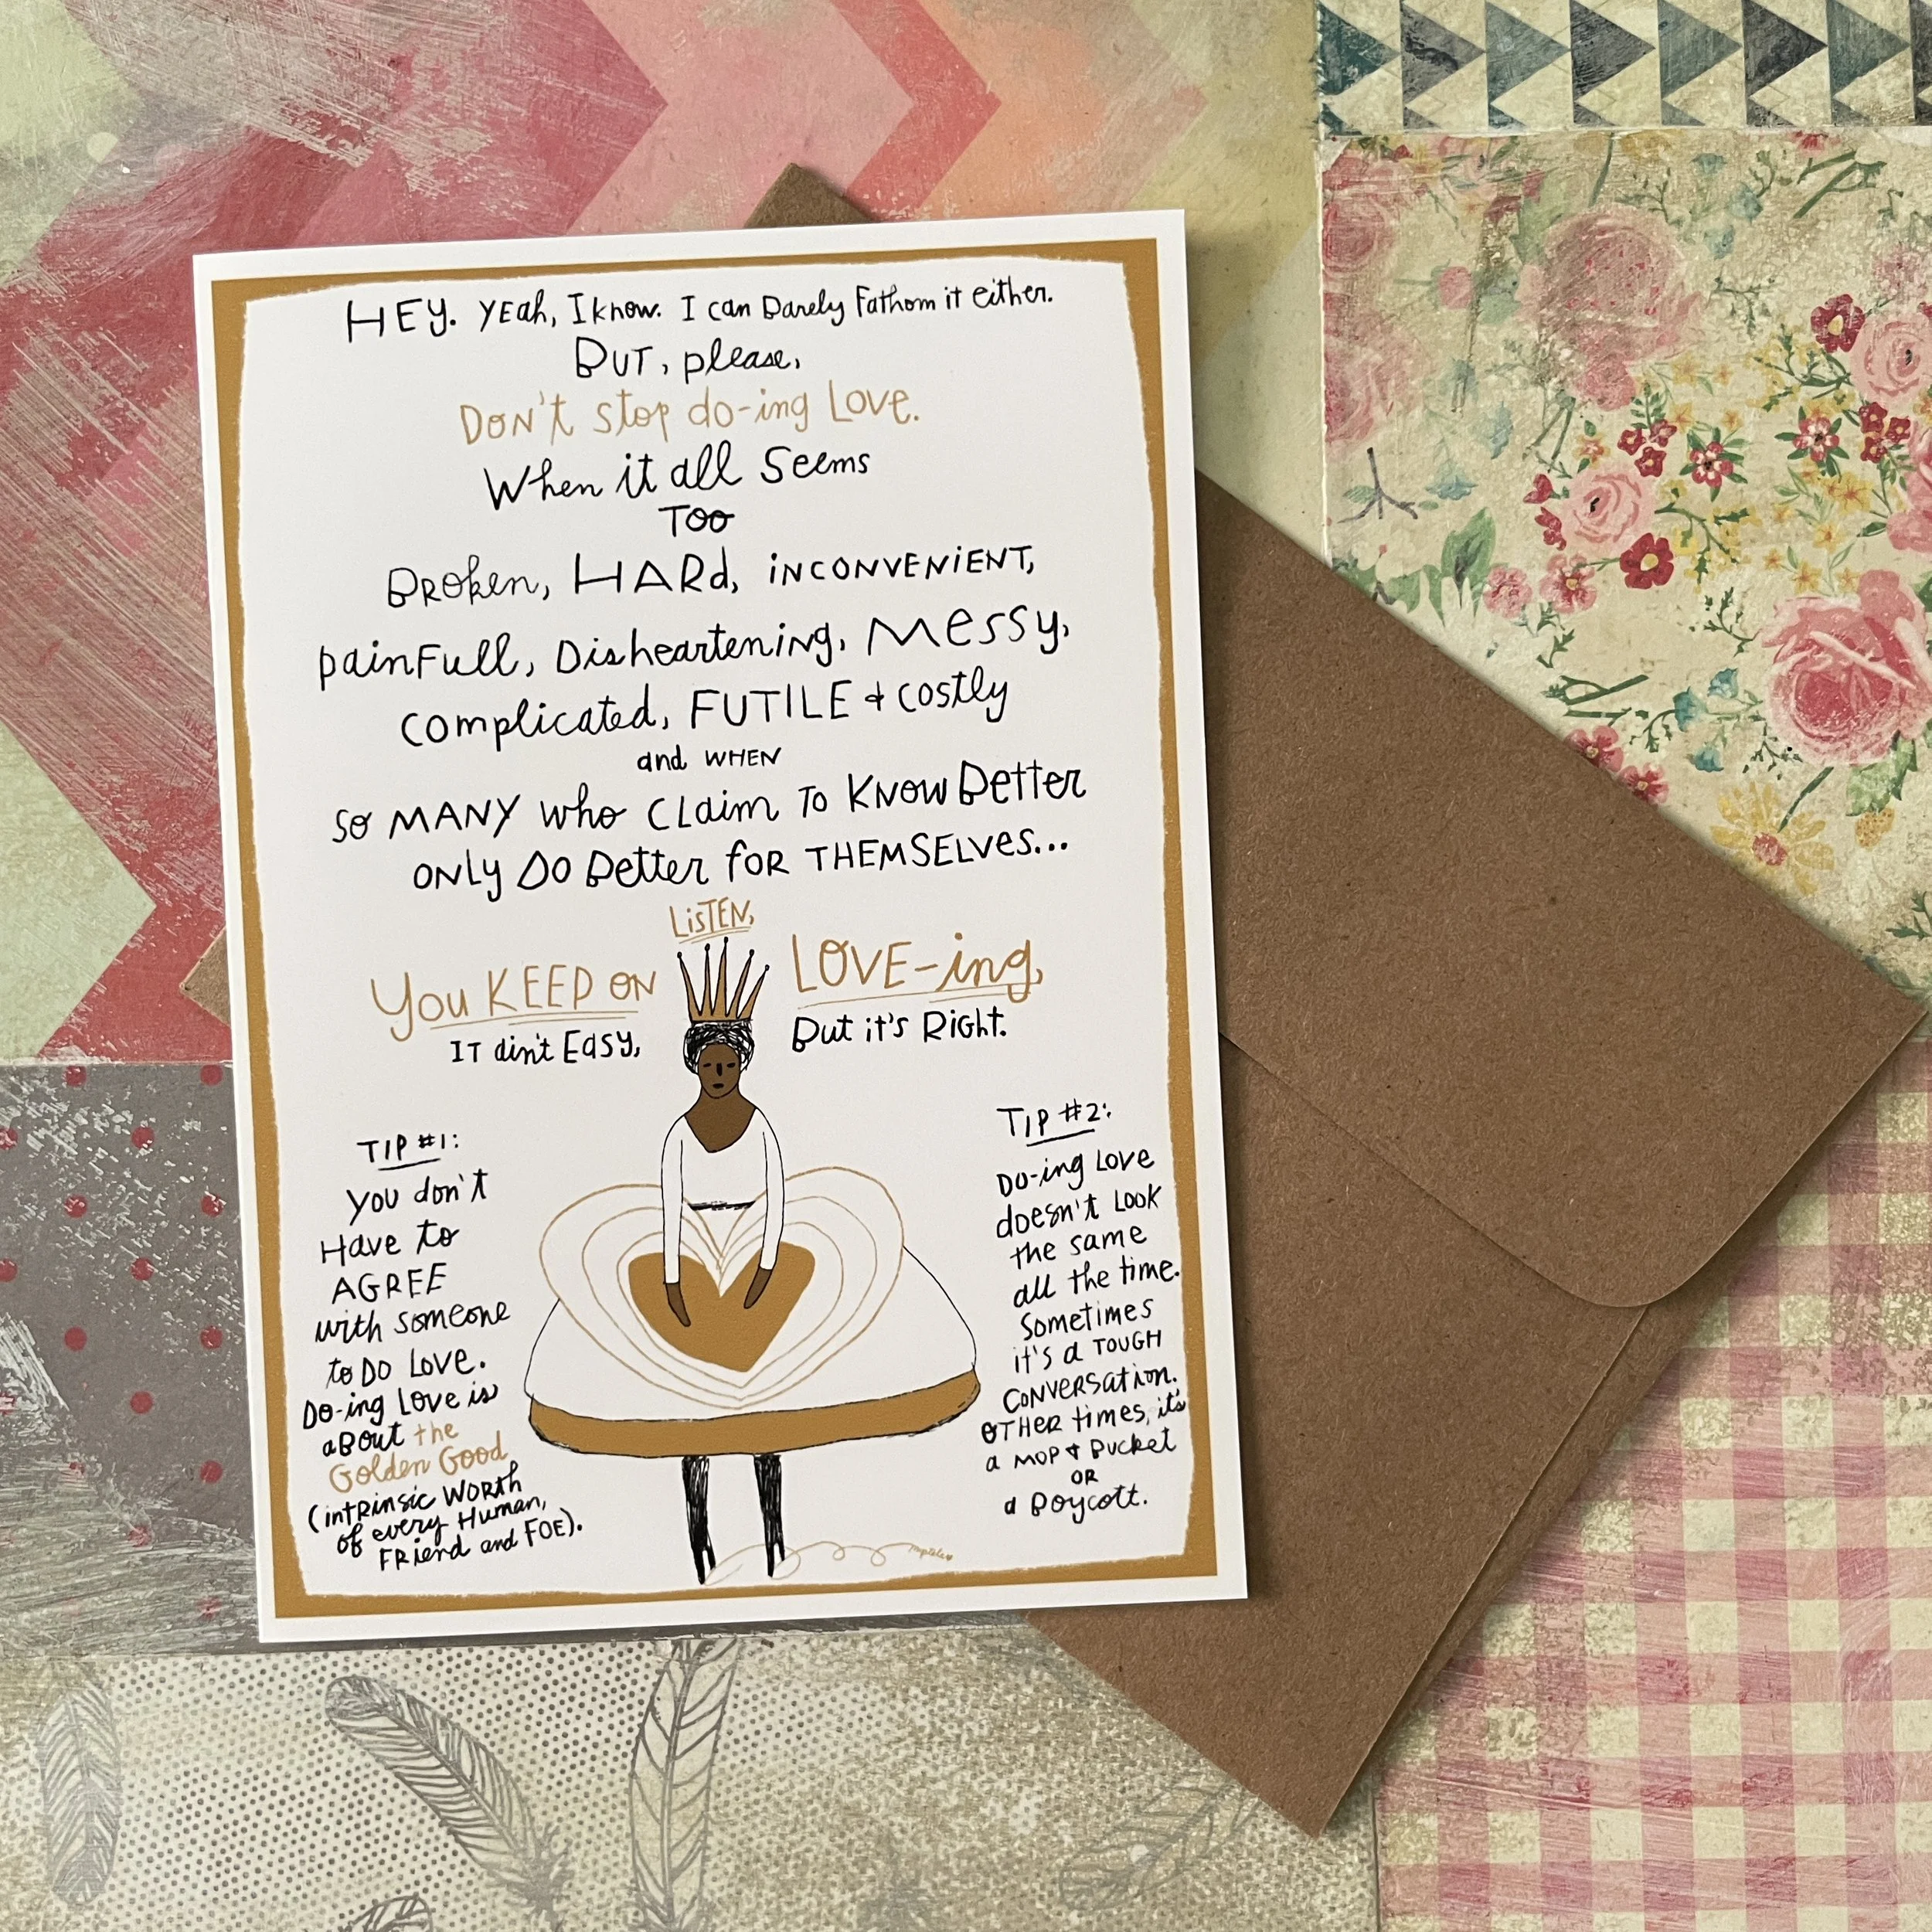 HEY. YEah, I know. I can Barely Fathom it either.
BUT, please,
DON't stop do-ing Love.
When it all Seems
TOO
BRoken, HARd, iNCONVENiENT,
painFull, Disheartening, Messy,
complicated, FUTILE & costly
and WHEN
so MANY who CLaim To KNow Better
ONLy DO Better foR THEMSELVes...
LisTEN,
You KEEP ON LOVE-ing,
IT ain't Easy, But it's Right.
TIP #1:
you don't
Have to
AGREE
with someone
to DO LOVE.
DO-ing LOVE is
aBOUT the
Golden Good
(intRinsic WORth
of every Human,
FRiend and FOE).
TIP #2:
DO-ing LOVE
doesn't LOOK
the same
all the time.
Sometimes
it's a TOUGH
CONVERSation.
OTHER times, it's
a MOP & Bucket
OR
a Boycott.